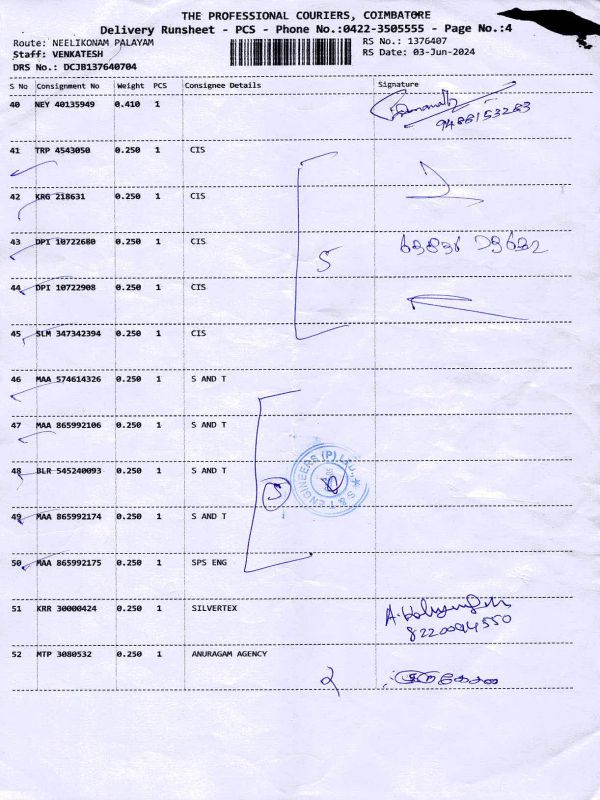 THE PROFESSIONAL COURIERS, COIMBATORE
Delivery Runsheet - PCS - Phone No.:0422-3505555 - Page No.:4
Route: NEELIKONAM PALAYAM
RS No.: 1376407
Staff: VENKATESH
RS Date: 03-Jun-2024
DRS No.: DCJB137640704
S No Consignment No Weight PCS Consignee Details Signature
40 NEY 40135949 0.410 1
9486153283
41 TRP 4543050 0.250 1 CIS
42 KRG 218631 0.250 1 CIS
43 DPI 10722680 0.250 1 CIS
5
44 DPI 10722908 0.250 1 CIS
45 SLM 347342394 0.250 1 CIS
46 MAA 574614326 0.250 1 S AND T
47 MAA 865992106 0.250 1 S AND T
48 BLR 545240093 0.250 1 S AND T
S & T ENGINEERS (P) Ltd.,
5
49 MAA 865992174 0.250 1 S AND T
50 MAA 865992175 0.250 1 SPS ENG
51 KRR 30000424 0.250 1 SILVERTEX
8220094550
52 MTP 3080532 0.250 1 ANURAGAM AGENCY